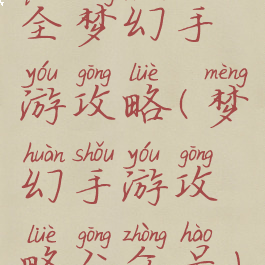 全梦幻手
yóu gōng lüè mèng
游攻略(梦
huàn shǒu yóu gōng
幻手游攻
lüè gōng zhòng hào
略公众号)